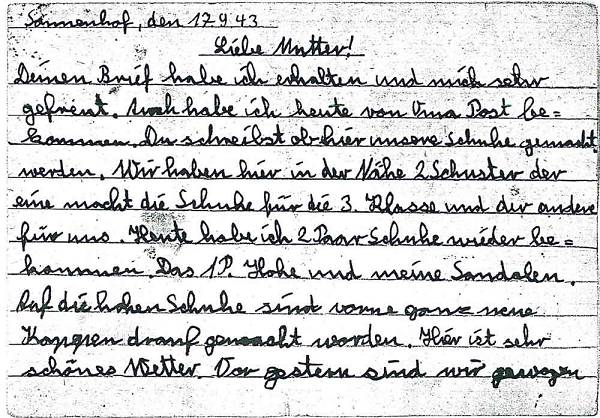 Sannenhof, den 17.9.43
Liebe Mutter!
Deinen Brief habe ich erhalten und mich sehr
gefreut. Auch habe ich heute von Oma Post be=
kommen. Du schreibst ob hier unsere Schuhe gemacht
werden. Wir haben hier in der Nähe 2 Schuster der
eine macht die Schuhe für die 3. Klasse und der andere
für uns. Heute habe ich 2 Paar Schuhe wieder be=
kommen. Das 1 P. Hohe und meine Sandalen.
Auf die hohen Schuhe sind vorne ganz neue
Kappen drauf gemacht worden. Hier ist sehr
schönes Wetter. Vor gestern sind wir gewogen